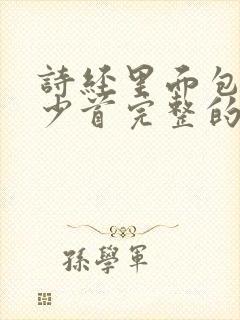 詩經里而包
少首完整的
孫學軍